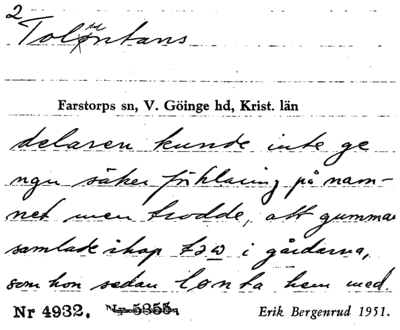 2
Tolontans
Farstorps sn, V. Göinge hd, Krist. län
delaren kunde inte ge
ngn säker förklaring på nam-
net men trodde, att gumman
samlade ihop i gårdarna,
som hon sedan lonta hem med
Nr 4932. Nr 5355. Erik Bergenrud 1951.